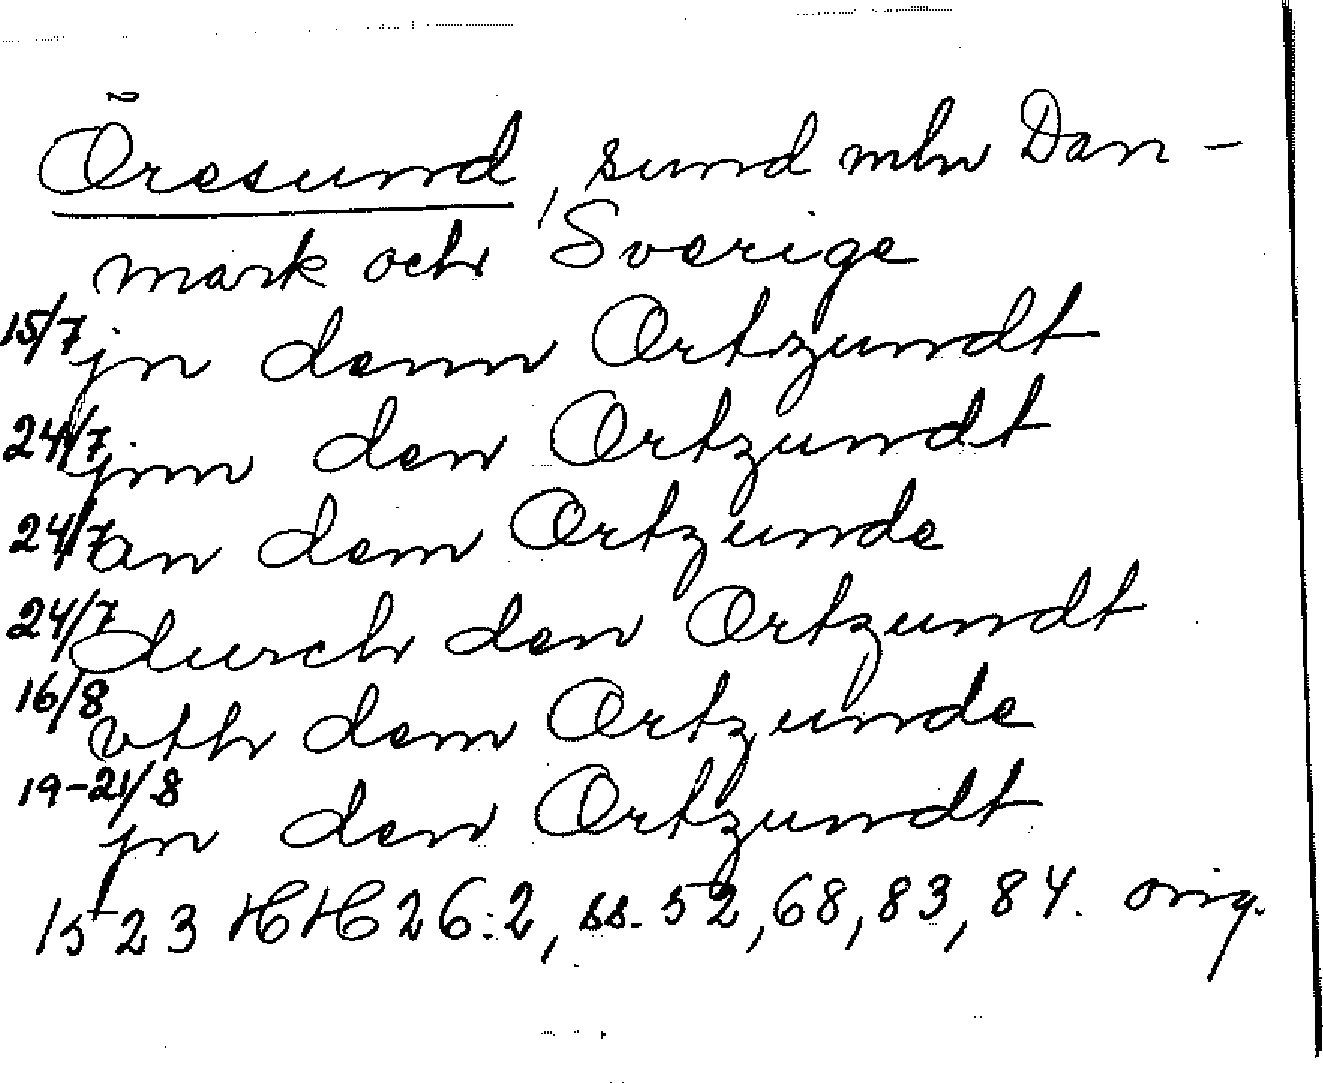 Öresund, sund mln Dan-
mark och Sverige
15/7 jn denn Ortzundt
24/7 jnn den Ortzundt
24/7 an dem Ortzunde
24/7 durch den Ortzundt
16/8 vth dem Ortzunde
19-21/8 jn den Ortzundt
1523 HH 26:2, ss. 52, 68, 83, 84. orig.